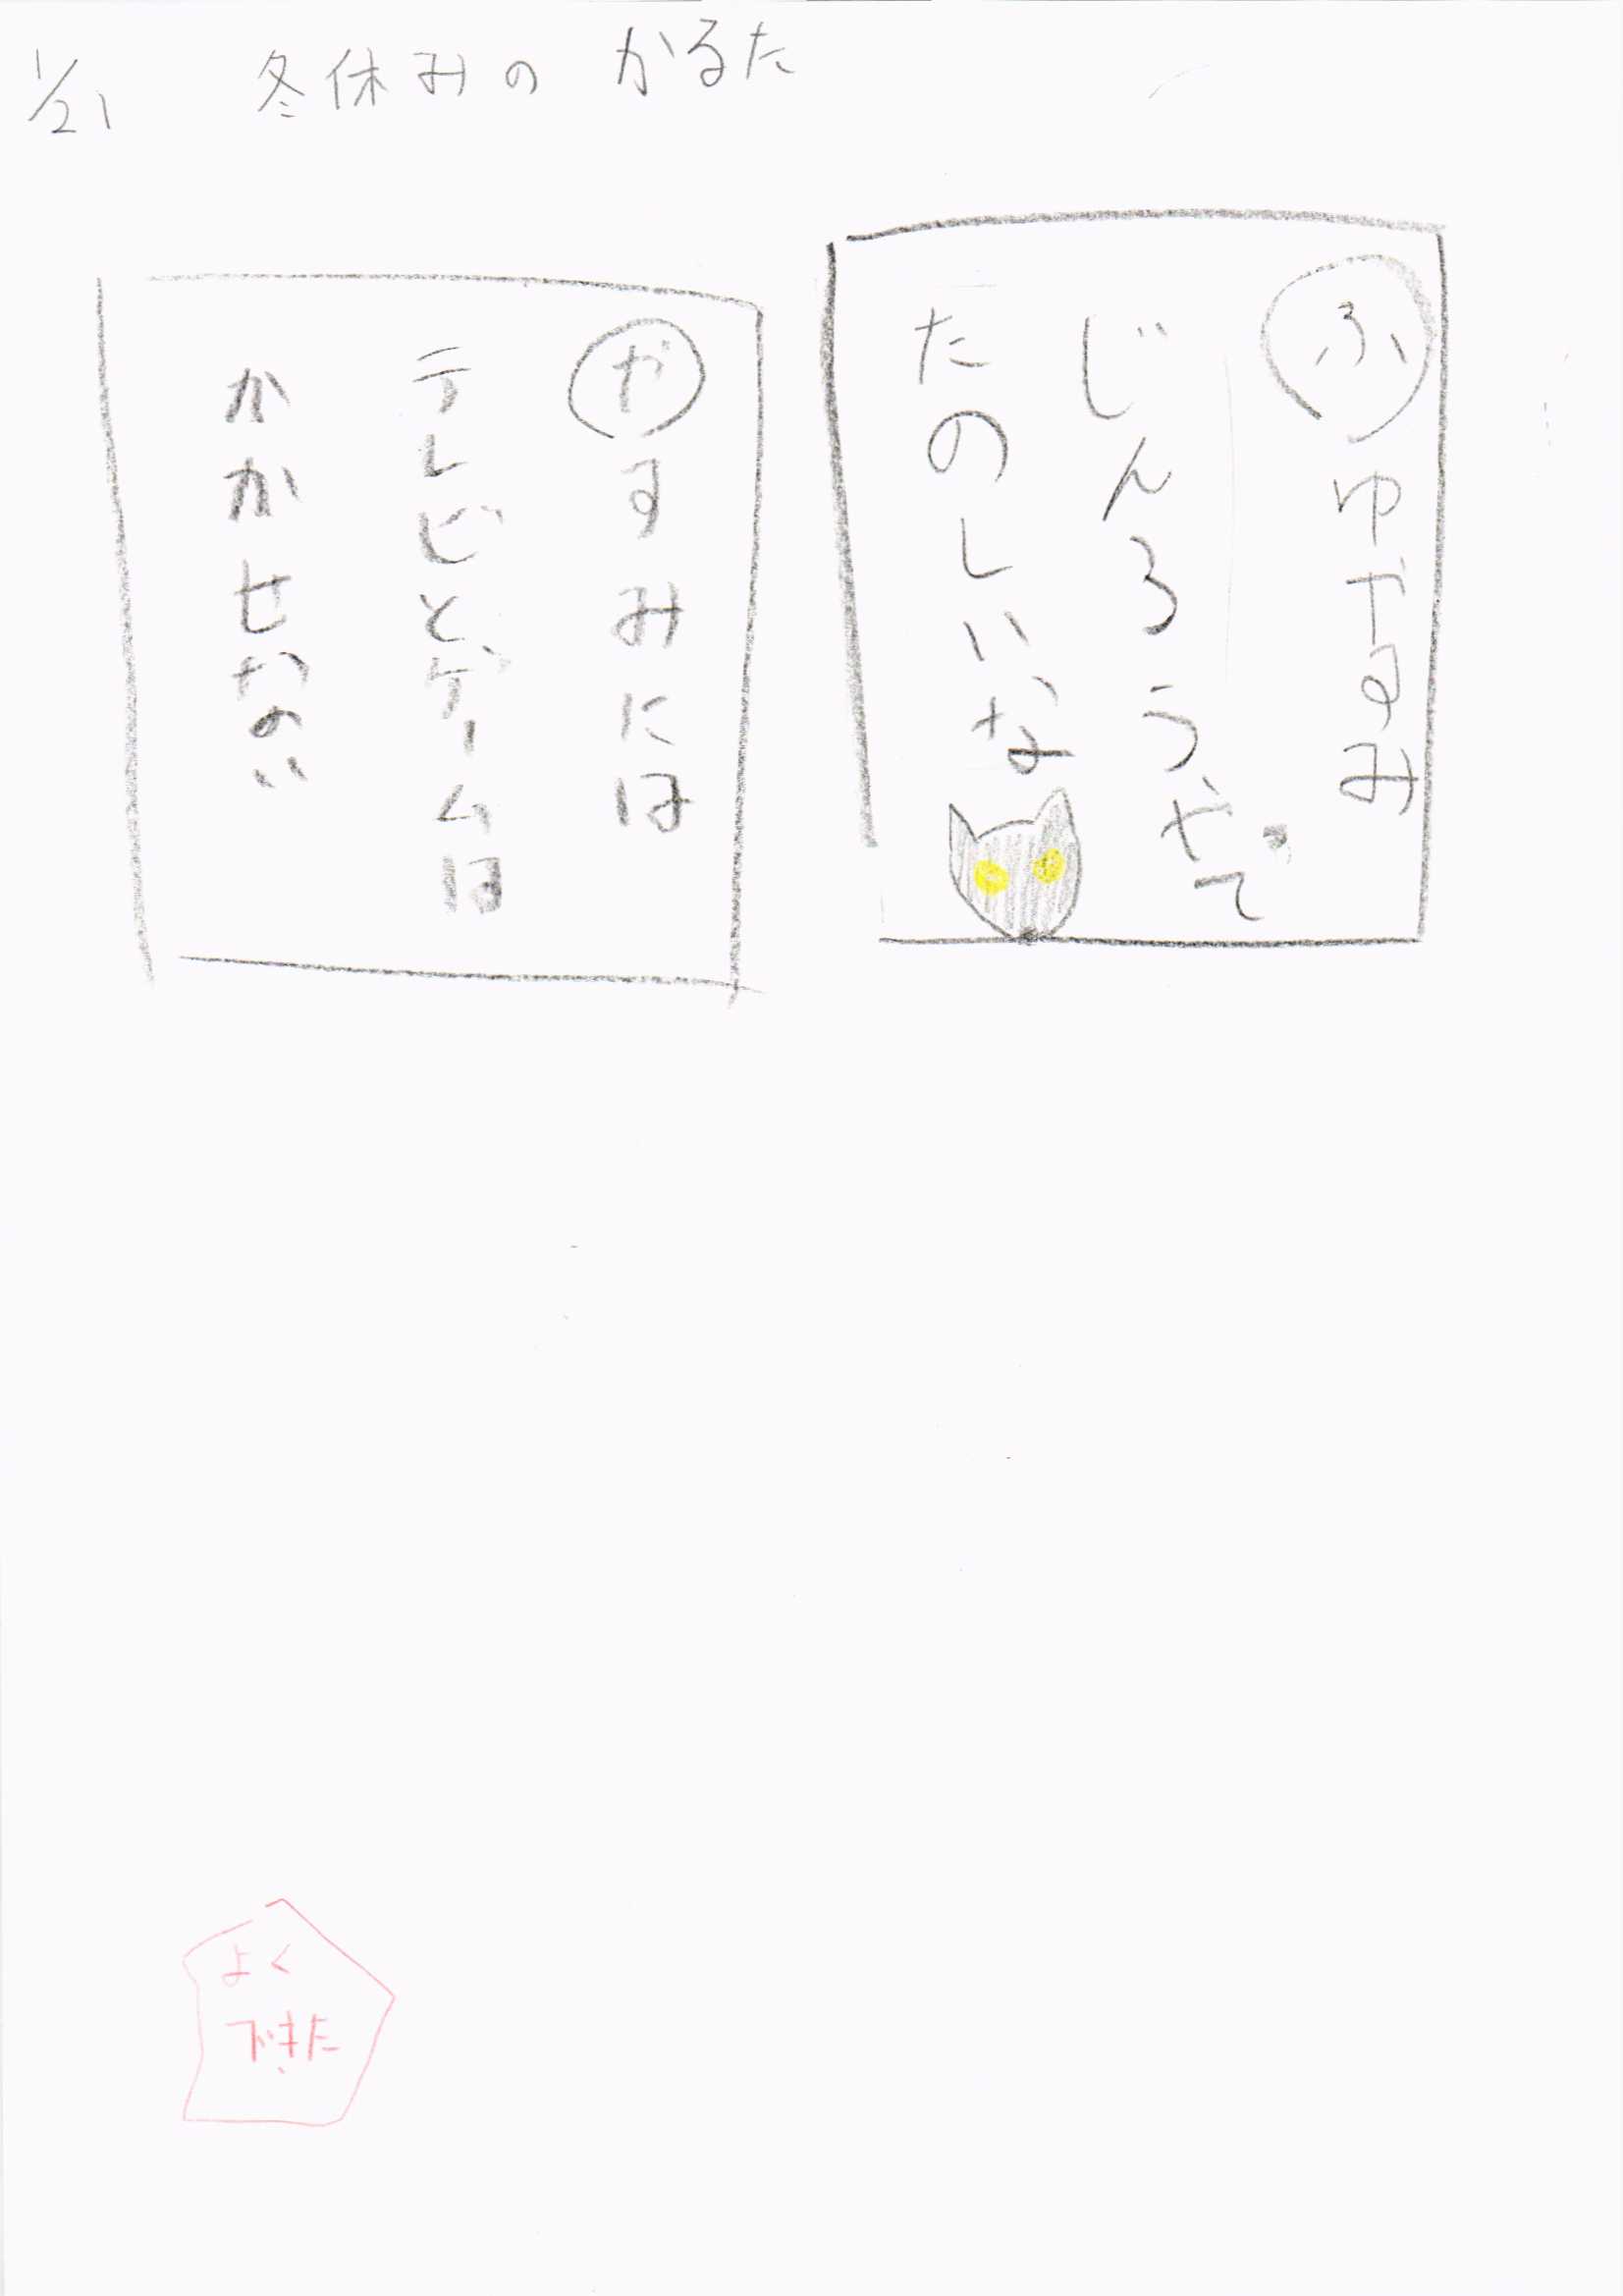 1/21 冬休みの かるた
ふゆやすみ
じんろうやで
たのしいな
やすみには
テレビとゲームは
かかせない
よく
できた